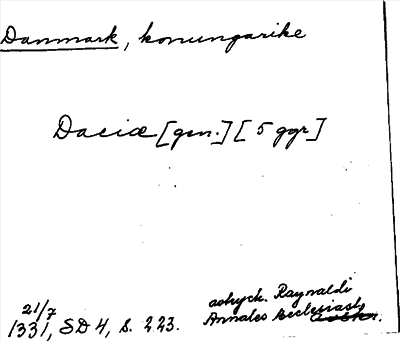 Danmark, konungarike
Daciæ [gen.] [5 ggr]
21/7
1331, SD 4, s. 223.
avtryck. Raynaldi
Annales Ecclesiast.